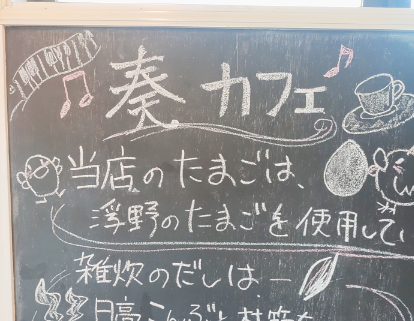 奏 カフェ
当店のたまごは、
浮野のたまごを使用して、
雑炊のだしは一
日高こんぶと